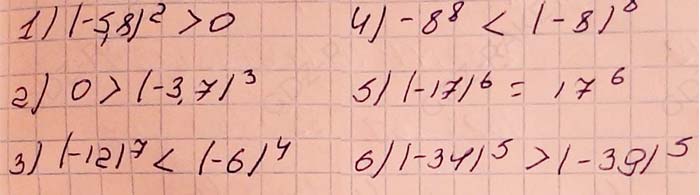 1) (-5,8)² > 0
2) 0 > (-3,7)³
3) (-12)⁷ < (-6)⁴
4) -8⁸ < (-8)⁸
5) (-17)⁶ = 17⁶
6) (-34)⁵ > (-39)⁵